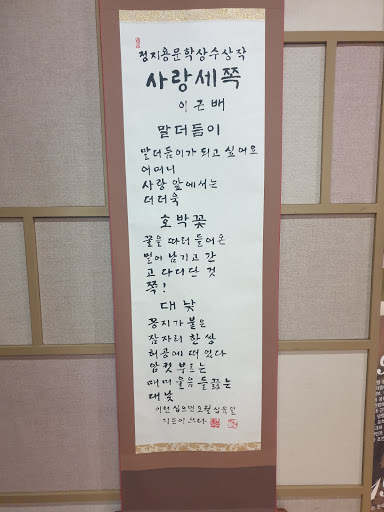 정지용문학상수상작
사랑세쪽
이근배
말더듬이
말더듬이가 되고 싶어요
어머니
사랑 앞에서는
더더욱
호박꽃
꿀을 따러 들어온
벌이 남기고 간
고 다디단 것
쪽!
대낮
꽁지가 붙은
잠자리 한 쌍
허공에 떠 있다
암컷 부르는
매미 울음 들끓는
대낮
이천 십오년 오월 십육일